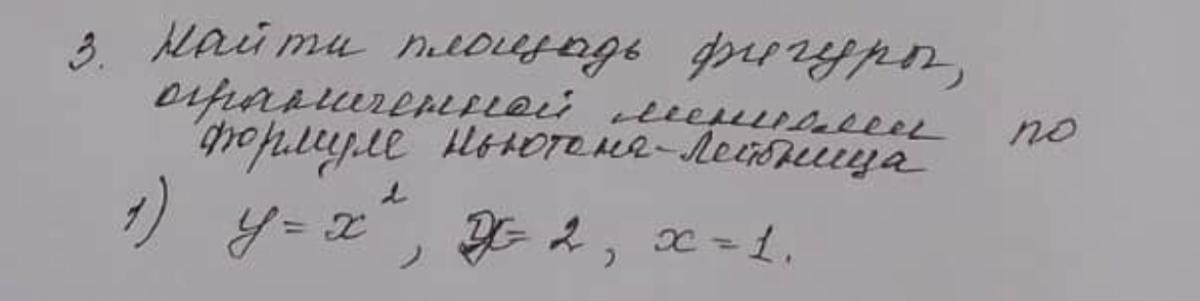 3. Найти площадь фигуры,
ограниченной линиями по
формуле Ньютона-Лейбница
1) y = x², = 2, x = 1.